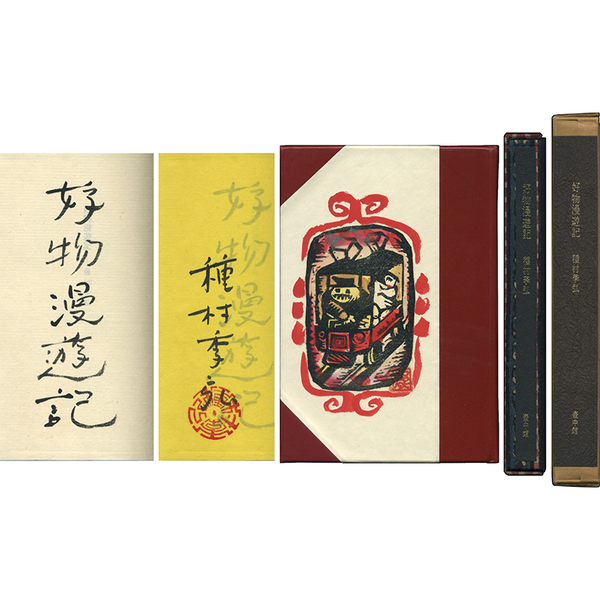 好物漫遊記
種村季弘
好物漫遊記
好物漫遊記 種村季弘
好物漫遊記 種村季弘